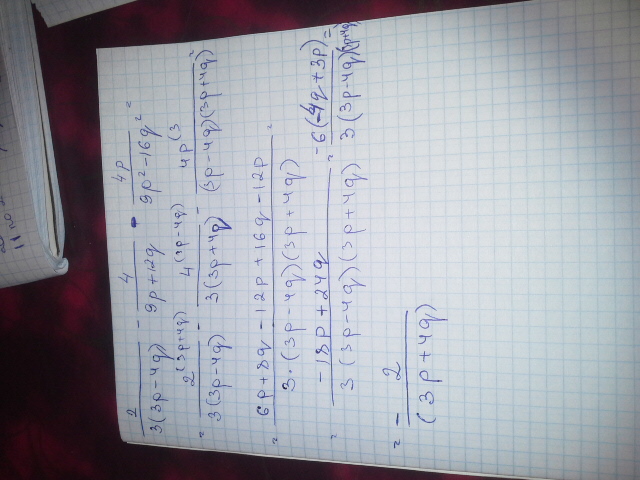 2/3(3p-4q) - 4/9p+12q - 4p/9p²-16q² =
= 2^(3p+4q)/3(3p-4q) - 4^(3p-4q)/3(3p+4q) - 4p^(3/(3p-4q)(3p+4q) =
= 6p+8q-12p+16q-12p/3·(3p-4q)(3p+4q) =
= -18p+24q/3(3p-4q)(3p+4q) = -6(-4q+3p)/3(3p-4q)(3p+4q) =
= - 2/(3p+4q)